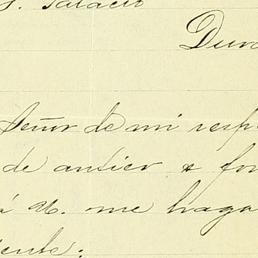 S. Palacio
Dura
Señor de mi resp
de antier & for
á U. me haga
ente: